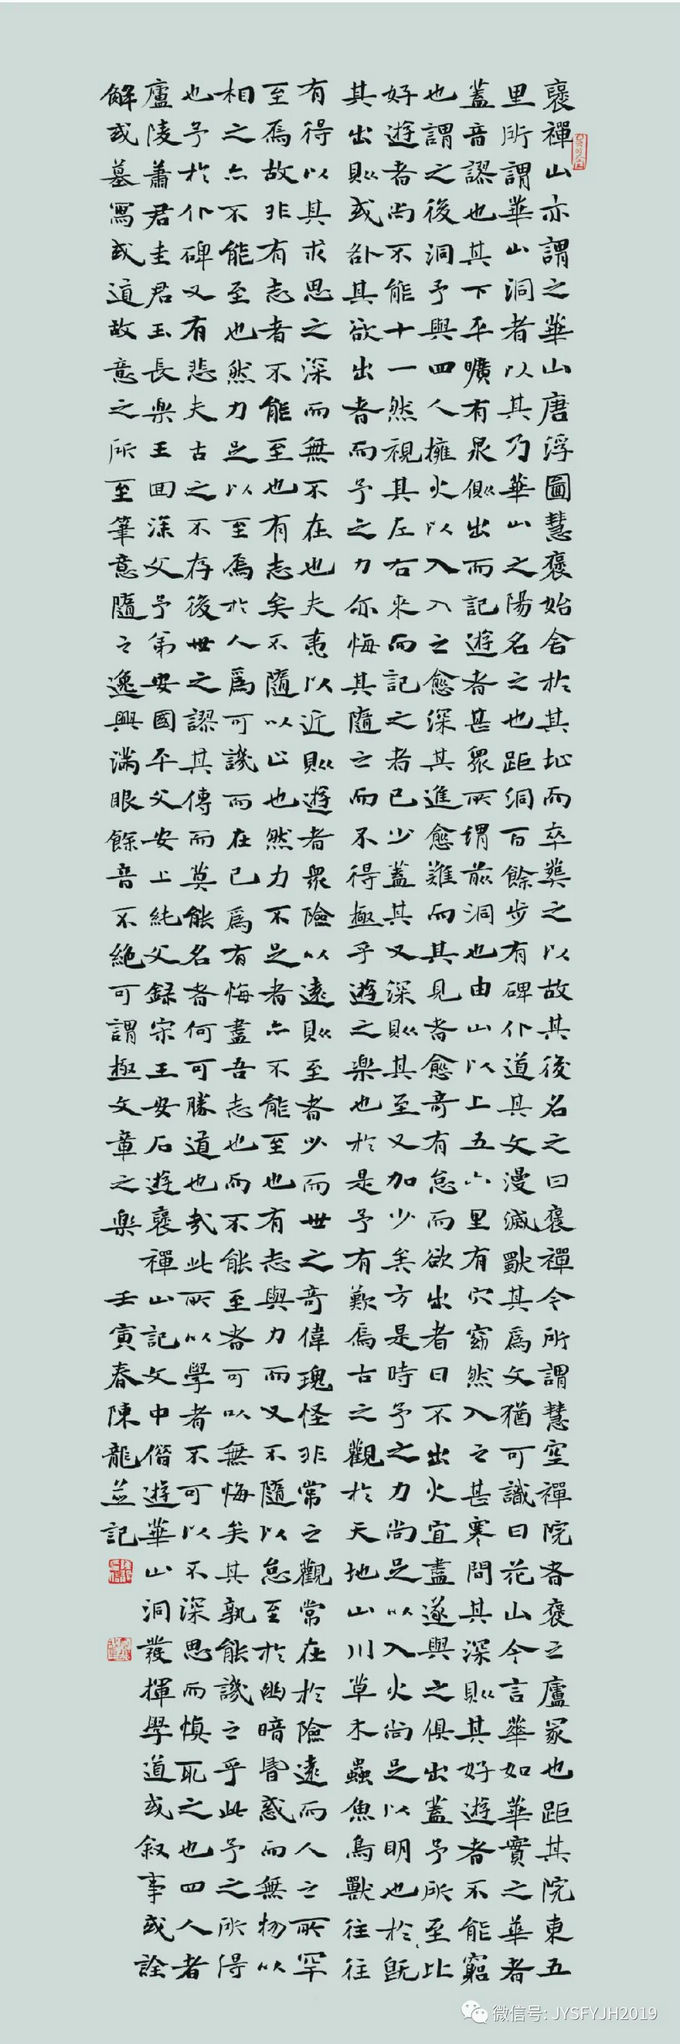 褒禪山亦謂之華山唐浮圖慧褒始舍於其址而卒葬之以故其後名之曰褒禪今所謂慧空禪院者褒之廬冢也距其院東五
里所謂華山洞者以其乃華山之陽名之也距洞百餘步有碑仆道其文漫滅獨其為文猶可識曰花山今言華如華實之華者
蓋音謬也其下平曠有泉側出而記遊者甚眾所謂前洞也由山以上五六里有穴窈然入之甚寒問其深則其好遊者不能窮
也謂之後洞予與四人擁火以入入之愈深其進愈難而其見者愈奇有怠而欲出者曰不出火宜盡遂與之俱出蓋予所至比
好遊者尚不能十一然視其左右來而記之者已少蓋其又深則其至又加少矣方是時予之力尚足以入火尚足以明也於既
其出則或咎其欲出者而予之力亦悔其隨之而不得極乎遊之樂也於是予有歎焉古之觀於天地山川草木蟲魚鳥獸往往
有得以其求思之深而無不在也夫夷以近則遊者眾險以遠則至者少而世之奇偉瑰怪非常之觀常在於險遠而人之所罕
至焉故非有志者不能至也有志矣不隨以止也然力不足者亦不能至也有志與力而又不隨以怠至於幽暗昏惑而無物以
相之亦不能至也然力足以至焉於人為可譏而在己為有悔盡吾志也而不能至者可以無悔矣其孰能譏之乎此予之所得
也予於仆碑又有悲夫古之不存後世之謬其傳而莫能名者何可勝道也哉此所以學者不可以不深思而慎取之也四人者
廬陵蕭君圭君玉長樂王回深父予弟安國平父安上純父錄宋王安石遊褒禪山記文中偕遊華山洞發揮學道或敘事或詮
解或墓寫或道故意之所至筆意隨之逸興滿眼餘音不絕可謂極文章之樂 壬寅春陳龍並記
微信号: JYSFYJH2019